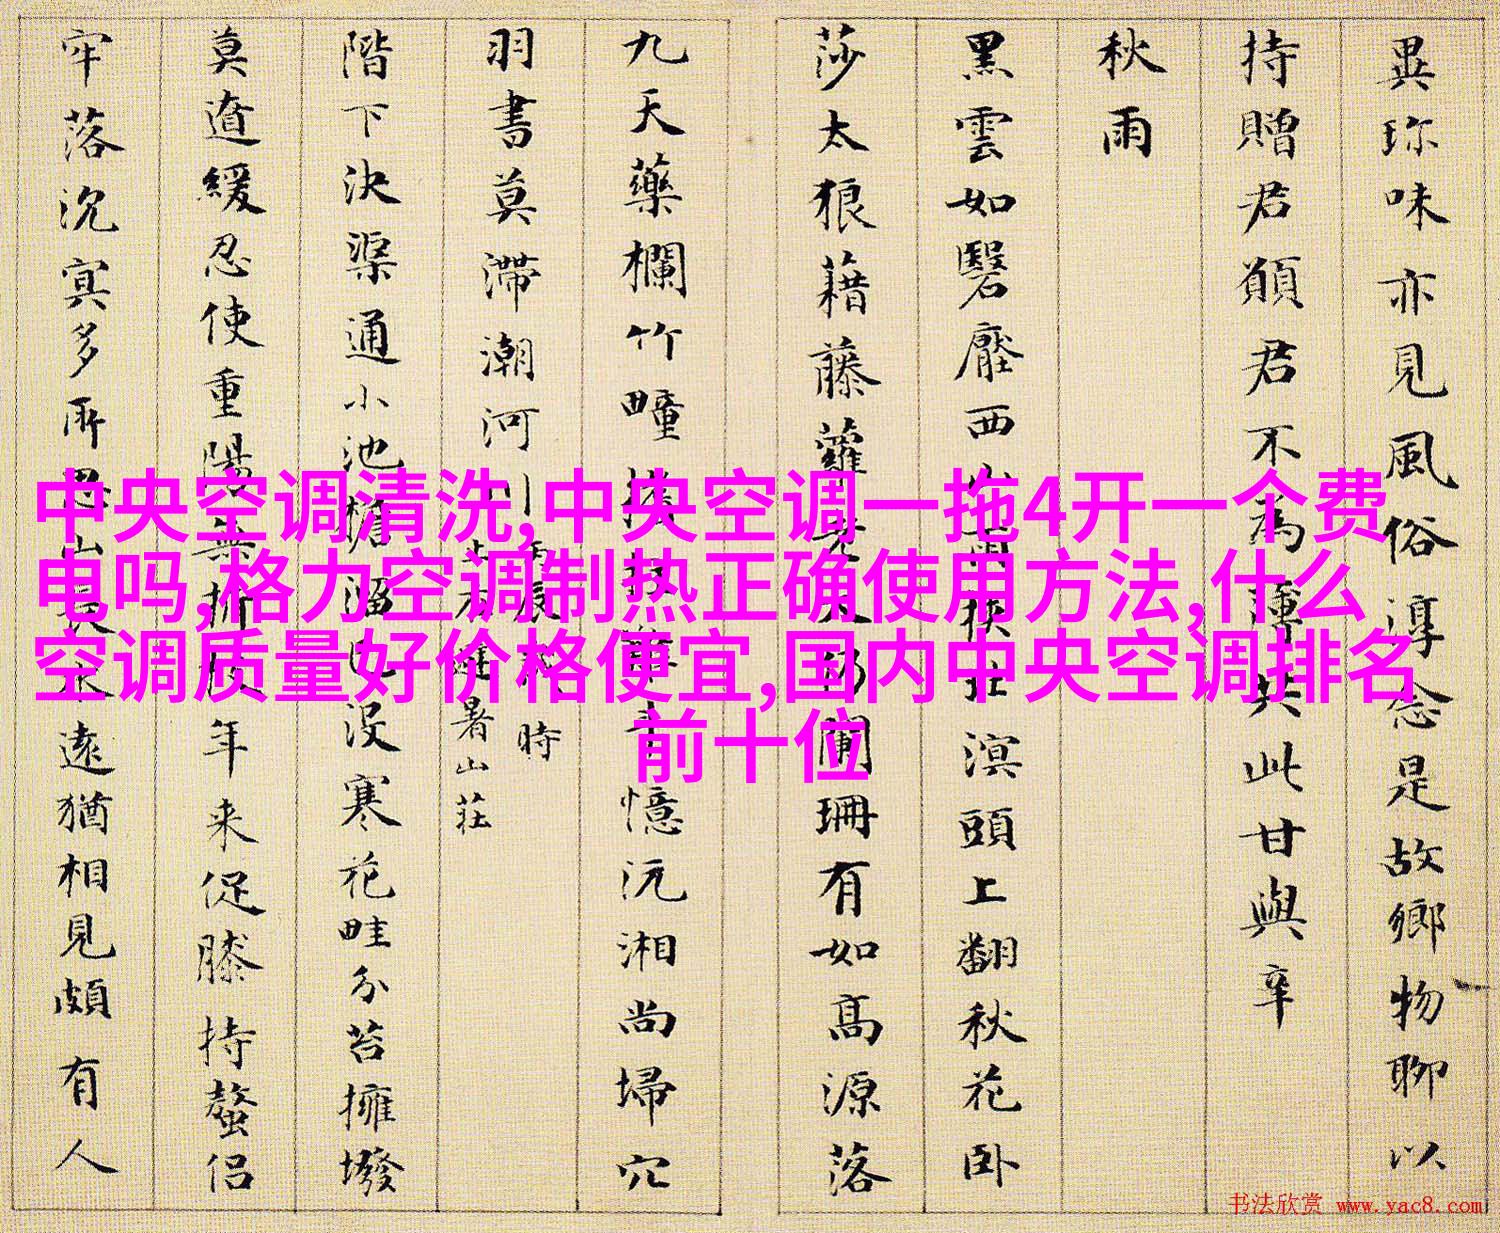 異珎味亦見風俗淳念是故鄉物聊以
持贈君願君不為薄共此甘與辛
秋雨
黑雲如翳壓西山雨橫狂溟頭上翻秋花卧
莎太狼藉藤蘿老人仍闌珊有如高源落
九天藥欄竹疃憶沅湘尚埽穴
羽書莫滯潮河川
丙辰時
暑山莊
階下決渠通小池檐溜已沒寒花畦分苔擁墢
莫遒緩忍使重陽無年来促膝持螯侶
牢落沉冥多所思山長水遠猶相見頗有人
中央空调清洗,中央空调一拖4开一个费
电吗,格力空调制热正确使用方法,什么
空调质量好价格便宜,国内中央空调排名
前十位
书法欣赏 www.yac8.com